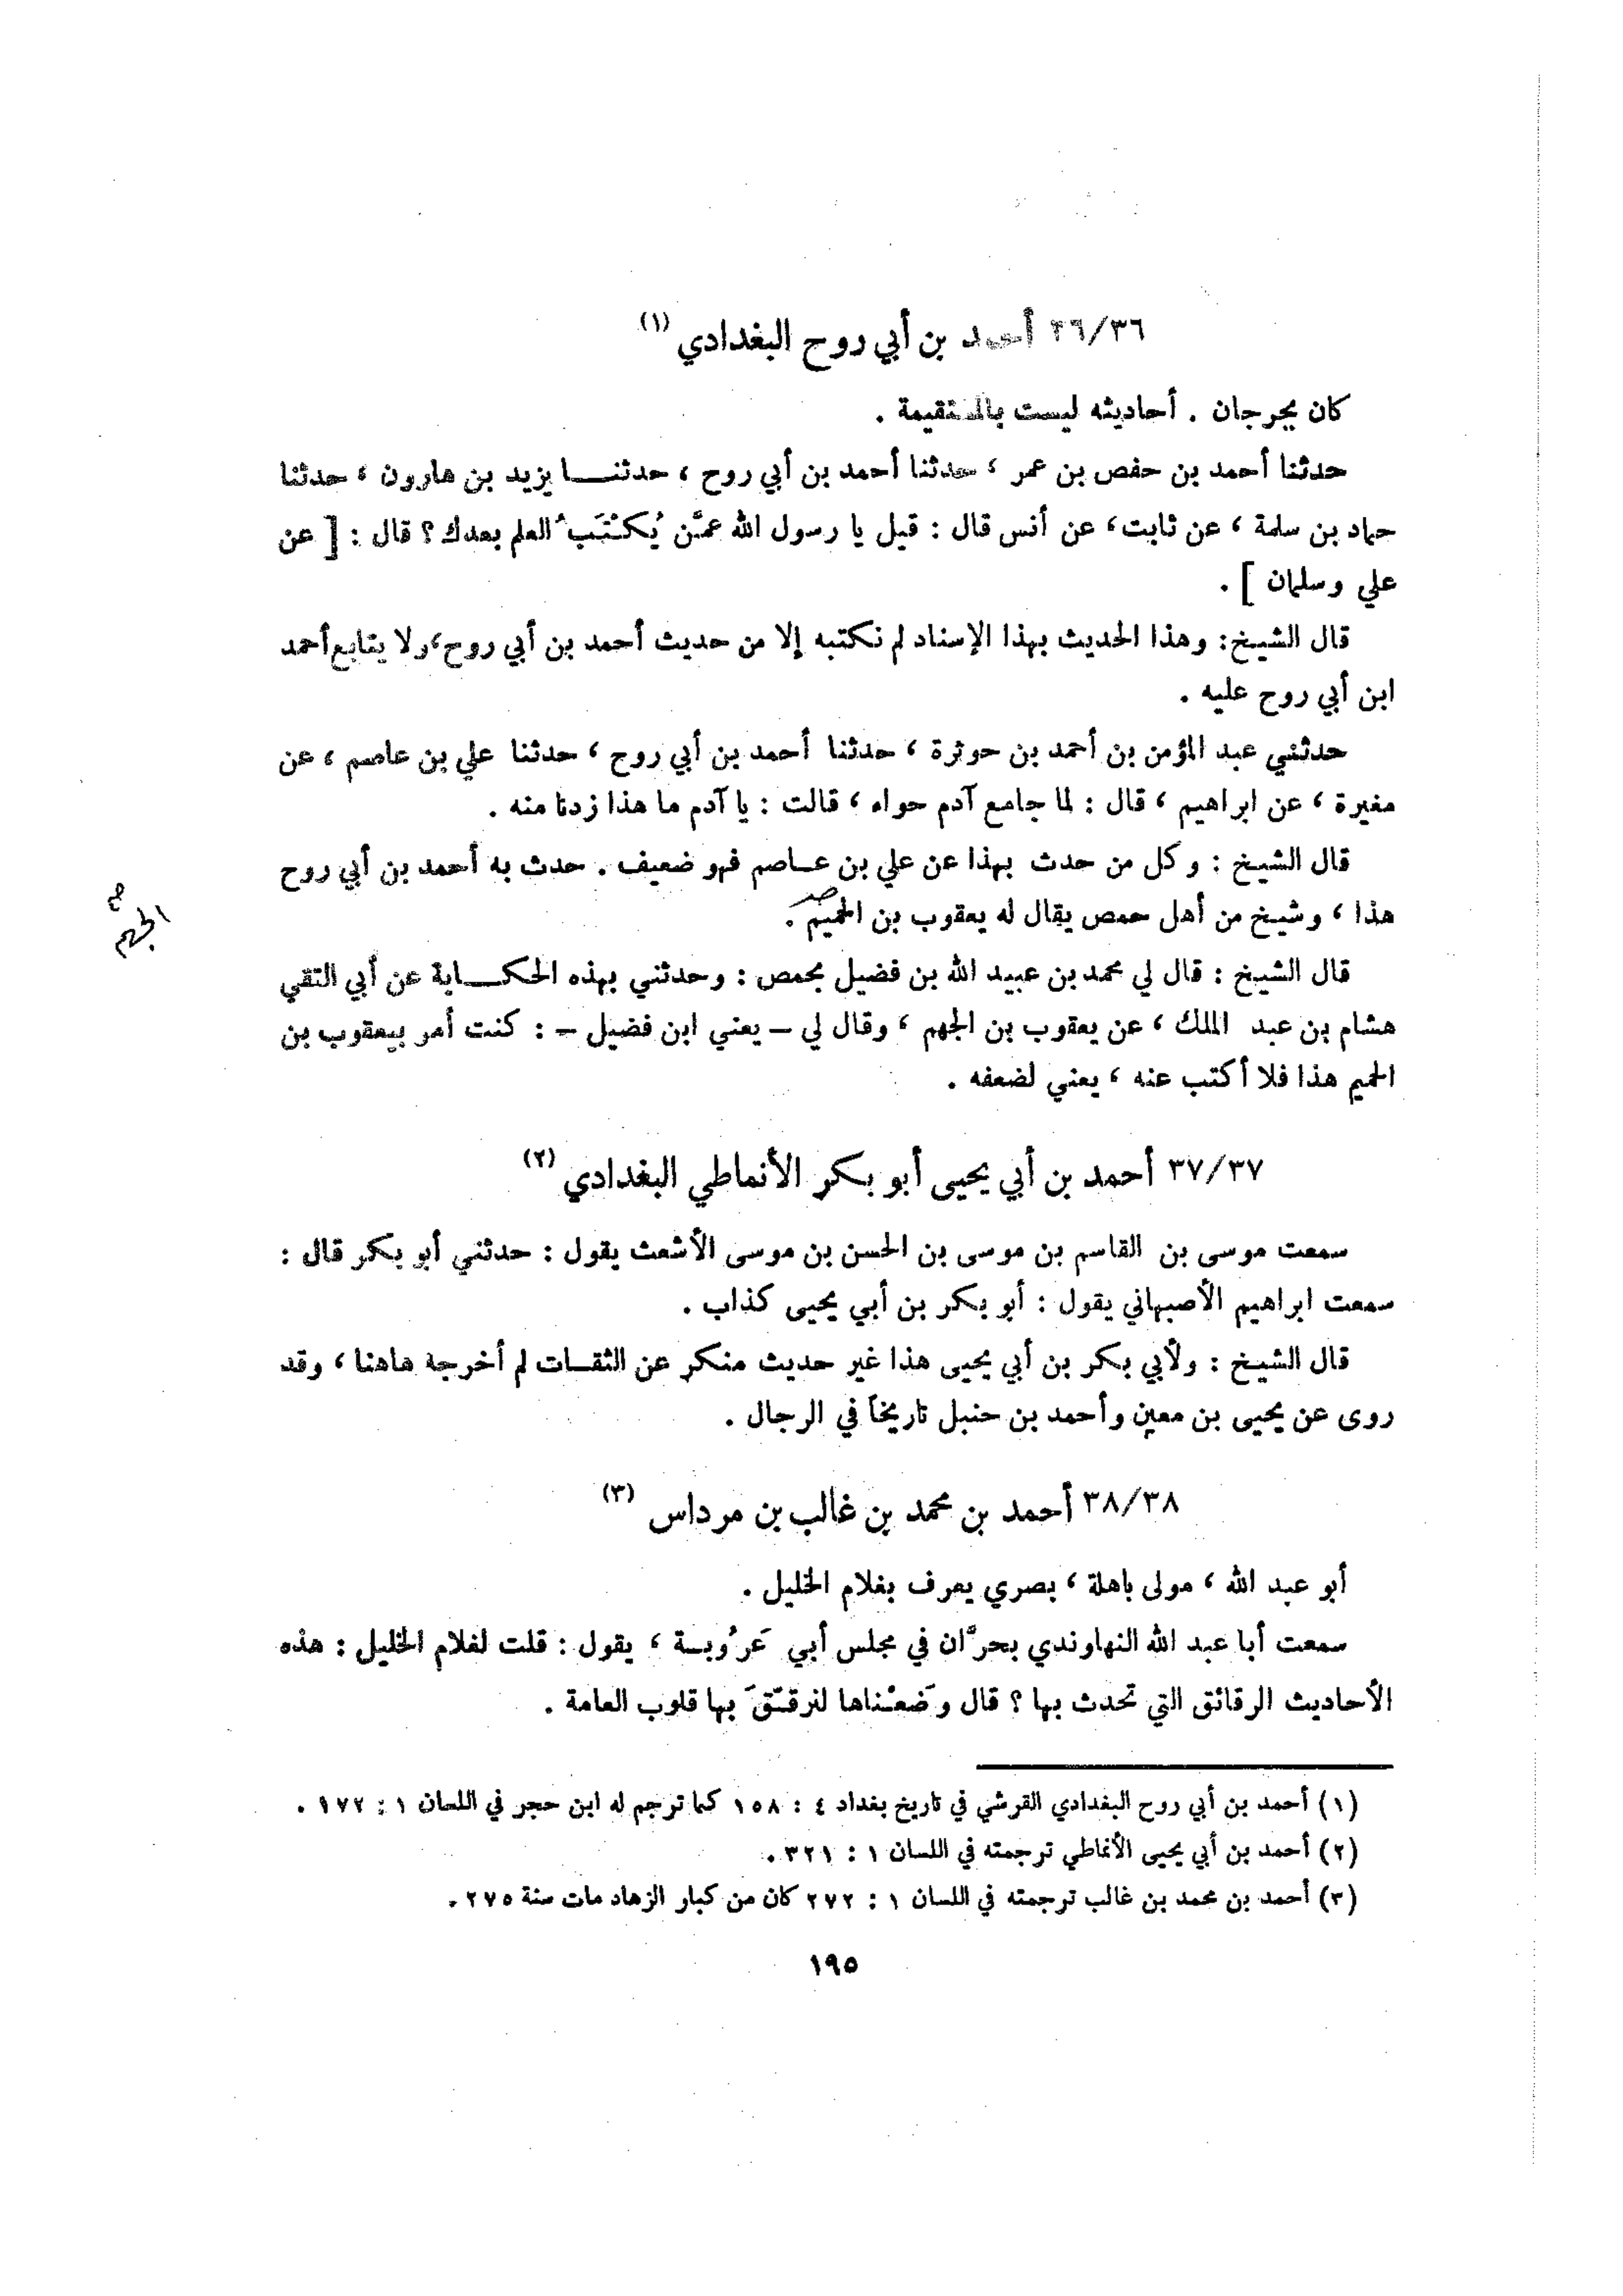 ٣٦/٣٦ أحمد بن أبي روح البغدادي (١)
كان بجرجان . أحاديثه ليست بالمستقيمة .
حدثنا أحمد بن حفص بن عمر ، حدثنا أحمد بن أبي روح ، حدثنا يزيد بن هارون ، حدثنا
حماد بن سلمة ، عن ثابت ، عن أنس قال : قيل يا رسول الله عمَّن يُكتَبُ العلم بعدك ؟ قال : [ عن
علي وسلمان ] .
قال الشيخ : وهذا الحديث بهذا الإسناد لم نكتبه إلا من حديث أحمد بن أبي روح ، ولا يتابع أحمد
ابن أبي روح عليه .
حدثني عبد المؤمن بن أحمد بن حوثرة ، حدثنا أحمد بن أبي روح ، حدثنا علي بن عاصم ، عن
مغيرة ، عن ابراهيم ، قال : لما جامع آدم حواء ، قالت : يا آدم ما هذا زدنا منه .
قال الشيخ : وكل من حدث بهذا عن علي بن عاصم فهو ضعيف . حدث به أحمد بن أبي روح
هذا ، وشيخ من أهل حمص يقال له يعقوب بن الحميم .
الجهم
قال الشيخ : قال لي محمد بن عبيد الله بن فضيل بحمص : وحدثني بهذه الحكاية عن أبي التقي
هشام بن عبد الملك ، عن يعقوب بن الجهم ، وقال لي – يعني ابن فضيل – : كنت أمر بيعقوب بن
الحميم هذا فلا أكتب عنه ، يعني لضعفه .
٣٧/٣٧ أحمد بن أبي يحيى أبو بكر الأنماطي البغدادي (٢)
سمعت موسى بن القاسم بن موسى بن الحسن بن موسى الأشعث يقول : حدثني أبو بكر قال :
سمعت ابراهيم الأصبهاني يقول : أبو بكر بن أبي يحيى كذاب .
قال الشيخ : ولأبي بكر بن أبي يحيى هذا غير حديث منكر عن الثقات لم أخرجه هاهنا ، وقد
روى عن يحيى بن معين وأحمد بن حنبل تاريخاً في الرجال .
٣٨/٣٨ أحمد بن محمد بن غالب بن مرداس (٣)
أبو عبد الله ، مولى باهلة ، بصري يعرف بغلام الخليل .
سمعت أبا عبد الله النهاوندي بحرَّان في مجلس أبي عَرُوبة ، يقول : قلت لغلام الخليل : هذه
الأحاديث الرقائق التي تحدث بها ؟ قال وَضعْناها لنرقِّقَ بها قلوب العامة .
(١) أحمد بن أبي روح البغدادي القرشي في تاريخ بغداد ٤ : ١٥٨ كما ترجم له ابن حجر في اللسان ١ : ١٧٢ .
(٢) أحمد بن أبي يحيى الأنماطي ترجمته في اللسان ١ : ٣٢١ .
(٣) أحمد بن محمد بن غالب ترجمته في اللسان ١ : ٢٧٢ كان من كبار الزهاد مات سنة ٢٧٥ .
١٩٥